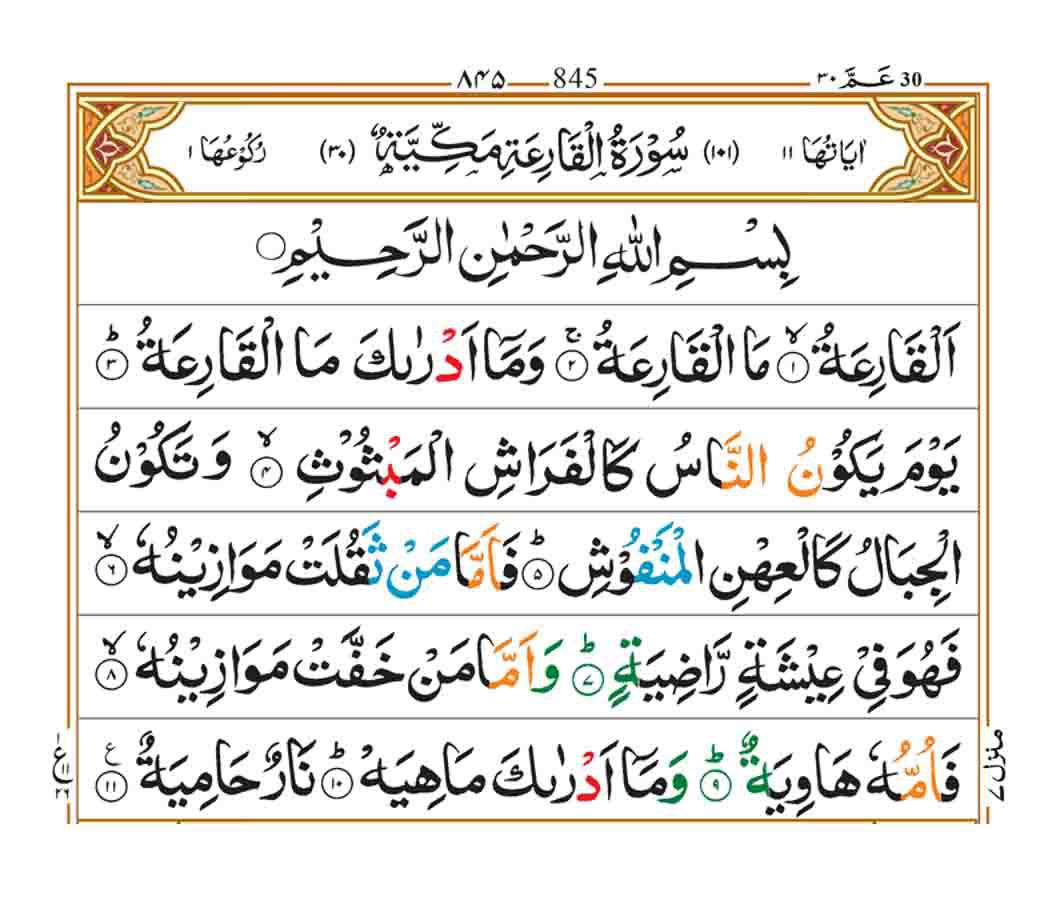 ۸۴۵ 845 عَمَّ ۳۰ 30
اٰیَاتُهَا ۱۱ (۱۰۱) سُوْرَةُ الْقَارِعَةِ مَكِّیَّةٌ (۳۰) رُكُوْعُهَا ۱
بِسْمِ اللّٰهِ الرَّحْمٰنِ الرَّحِیْمِ
اَلْقَارِعَةُ ۙ﴿۱﴾ مَا الْقَارِعَةُ ۚ﴿۲﴾ وَمَاۤ اَدْرٰىكَ مَا الْقَارِعَةُ ؕ﴿۳﴾
یَوْمَ یَكُوْنُ النَّاسُ كَالْفَرَاشِ الْمَبْثُوْثِ ۙ﴿۴﴾ وَ تَكُوْنُ
الْجِبَالُ كَالْعِهْنِ الْمَنْفُوْشِ ؕ﴿۵﴾ فَاَمَّا مَنْ ثَقُلَتْ مَوَازِیْنُهٗ ۙ﴿۶﴾
فَهُوَ فِیْ عِیْشَةٍ رَّاضِیَةٍ ؕ﴿۷﴾ وَاَمَّا مَنْ خَفَّتْ مَوَازِیْنُهٗ ۙ﴿۸﴾
فَاُمُّهٗ هَاوِیَةٌ ؕ﴿۹﴾ وَمَاۤ اَدْرٰىكَ مَاهِیَهْ ؕ﴿۱۰﴾ نَارٌ حَامِیَةٌ ﴿۱۱﴾ ع
منزل ۷
ع ۱ ۱۱ ۲۶